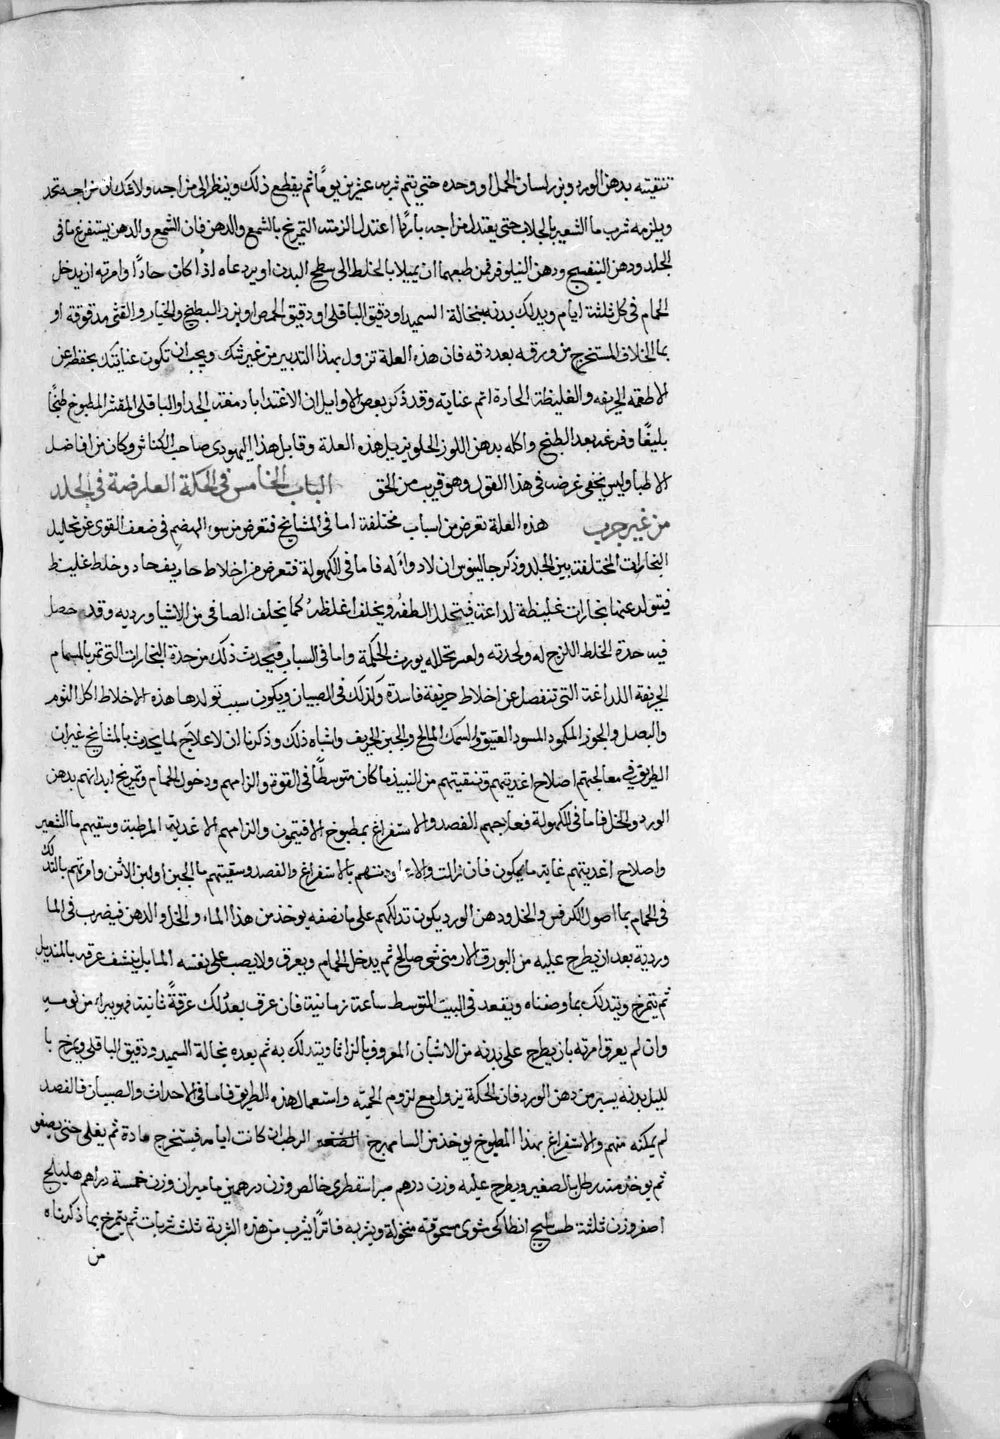 تنقيته بدهن الورد وبزر لسان الحمل او وحده حتي يتم شربه عشرين يوما ثم يقطع ذلك وينظر الى مزاجه ولا شك ان مزاجه تحد
ويلزمه شرب ما الشعير بالجلاب حتي يعتدل مزاجه باردا اعتدل الزمته التمريخ بالشمع والدهن فان الشمع والدهن يستفرغ ما في
الجلد ودهن البنفسج ودهن النيلوفر فمن طبعهما ان يميلا بالخلط الى سطح البدن او يردعاه اذا كان حادا وامرته ان يدخل
الحمام في كل ثلثة ايام ويدلك بدنه بنخالة السميد او دقيق الباقلى او دقيق الحمص او بزر البطيخ والخيار والقثى مدقوقة او
بما الخلاف المستخرج من ورقه بعد دقه فان هذه العلة تزول بهذا التدبير من غير شك ويجب ان تكون عنايتك بحفظه عن
الاطعمة الحريفه والغليظة الحادة اتم عناية وقد ذكر بعض الاوايل ان الاغتدا بادمغة الجدا والباقلى المقشر المطبوخ طبخا
بليغا وفرغه بعد الطبخ واكله بدهن اللوز الحلو يزيل هذه العلة وقايل هذا اليهودى صاحب الكناش وكان من افاضل
الاطبا وليس يخفى غرضه في هذا القول وهو قريب من الحق الباب الخامس في الحكة العارضة في الجلد
من غير جرب هذه العلة تعرض من اسباب مختلفة اما في المشايخ فتعرض من سوء الهضم في ضعف القوى عن تحليل
البخارات المختلفة بين الجلد وذكر جالينوس ان لا دواء له فاما في الكهولة فتعرض من اخلاط حاد يف حاد وخلط غليظ
فيتولد عنها بخارات غليظة لداعة فيتحلل الطفه ويخلف اغلظه كما يخلف الصافي من الاشيا ورديه وقد حصل
فيه حدة الخلط اللزج له ولحدته ولعسر تحلله يورث الحكة واما في الشباب فيحدث ذلك من حدة البخارات التي تمر بالمسام
الحريفة اللداغة التي تنفصل عن اخلاط حريفة فاسدة وكذلك في الصبيان ويكون سبب تولدها هذه الاخلاط اكل الثوم
والبصل والجوز المكمود المسود العتيق والسمك المالح والجبن الحريف واشباه ذلك وذكرنا ان لا علاج لما يحدث بالمشايخ غير ان
الطريق في معالجتهم اصلاح اغديتهم وتسقيتهم من النبيذ ما كان متوسطا في القوة والزامهم ودخول الحمام وتمريخ ابدانهم بدهن
الورد والخل فاما في الكهولة فعلاجهم الفصد والاستفراغ بمطبوخ الافتيمون والزامهم الاغدية المرطبة وسقيهم ما الشعير
واصلاح اغديتهم غاية ما يكون فان زالت والا اودمتهم بالاستفراغ والفصد وسقيتهم ما الجبن او لبن الاتن وامرتهم بالتدلك
في الحمام بما اصول الكرفس والخل ودهن الورد يكون تدلكهم على ما نصفه يوخذ من هذا الماء والخل والدهن فيضرب في الما
وردية بعد ان يطرح عليه من البورق الارمني شى صالح ثم يدخل الحمام ويعرق ولا يصب على نفسه الما بل ينشف عرقه بالمنديل
ثم يتمرخ ويتدلك بما وصفناه ويقعد في البيت المتوسط ساعة زمانية فان عرق بعد ذلك عرقة ثانية فهو يبراء من يومه
وان لم يعرق امرته بان يطرح على بدنه من الاشنان المعروف بالزاتا ويتدلك به ثم بعده بنخالة السميد ودقيق الباقلى ويمرخ با
لليل بدنه يسير من دهن الورد فان الحكة يزول مع لزوم الحميه واستعمال هذه الطريق فاما في الاحداث والصبيان فالفصد
لم يمكنه منهم والاستفراغ بهذا المطبوخ يوخذ من الساهمرج الصغير الرطب ان كانت ايامه فيستخرج ماده ثم يغلى حتى يصفى
ثم يوخذ منه رطل بالصغير ويطرح عليه وزن درهم صبر اسقطرى خالص وزن درهمين ماميران وزن خمسة دراهم هليلج
اصفر وزن ثلثة انطاكى مشوى مسحوقة منخولة ويشربه فاترا يشرب من هذه الشربة ثلث شربات ثم يتمرخ بما ذكرناه
من